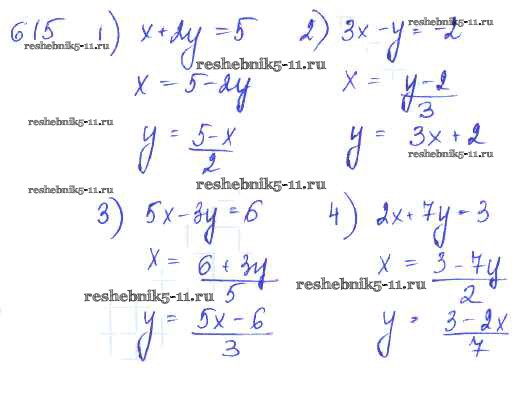 615 1) x + 2y = 5 2) 3x - y = -2
reshebnik5-11.ru reshebnik5-11.ru
x = 5 - 2y x = (y - 2)/3
reshebnik5-11.ru
y = (5 - x)/2 y = 3x + 2
reshebnik5-11.ru
reshebnik5-11.ru reshebnik5-11.ru
3) 5x - 3y = 6 4) 2x + 7y = 3
x = (6 + 3y)/5 x = (3 - 7y)/2
reshebnik5-11.ru reshebnik5-11.ru
y = (5x - 6)/3 y = (3 - 2x)/7